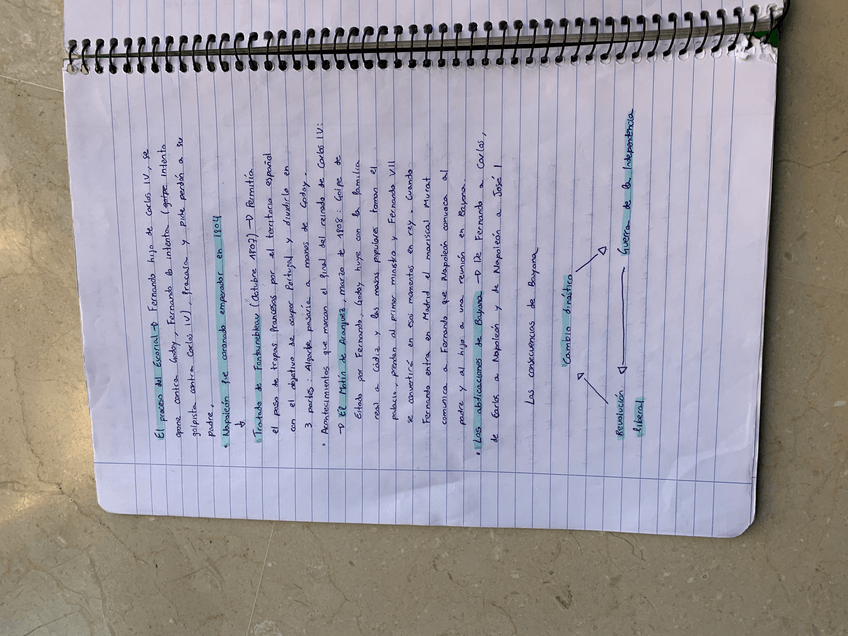 El proceso del Escorial → Fernando hijo de Carlos IV, se
opone contra Godoy, Fernando lo intenta (golpe Intento
golpista contra Carlos IV), fracasa y pide perdón a su
padre.
• Napoleón fue coronado emperador en 1804
↓
Tratado de Fontainebleau (Octubre 1807) → Permitía
el paso de tropas francesas por el territorio español
con el objetivo de ocupar Portugal y dividirlo en
3 partes: Algarbe pasaría a manos de Godoy.
• Acontecimientos que marcan el final del reinado de Carlos IV:
→ El Motín de Aranjuez, marzo de 1808: Golpe de
Estado por Fernando, Godoy huye con la familia
real a Cádiz y las masas populares toman el
palacio, prenden al primer ministro y Fernando VII
se convertirá en esos momentos en rey. Cuando
Fernando entra en Madrid el mariscal Murat
comunica a Fernando que Napoleón convoca al
padre y al hijo a una reunión en Bayona.
• Las abdicaciones de Bayona → De Fernando a Carlos,
de Carlos a Napoleón y de Napoleón a José I
Las consecuencias de Bayona
Cambio dinástico
Revolución liberal
Guerra de la Independencia